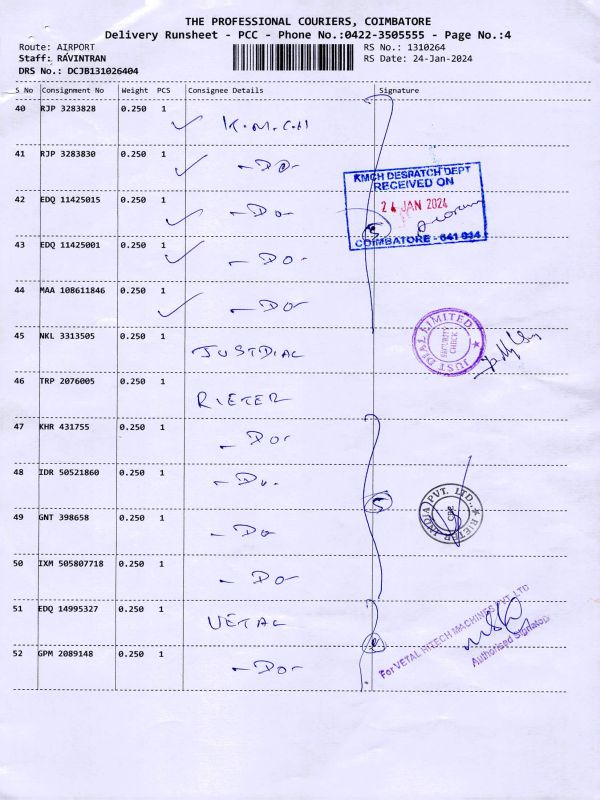 THE PROFESSIONAL COURIERS, COIMBATORE
Delivery Runsheet - PCC - Phone No.:0422-3505555 - Page No.:4
Route: AIRPORT RS No.: 1310264
Staff: RAVINTRAN RS Date: 24-Jan-2024
DRS No.: DCJB131026404
S No Consignment No Weight PCS Consignee Details Signature
40 RJP 3283828 0.250 1 K.M.C.H
41 RJP 3283830 0.250 1 -Do-
KMCH DESPATCH DEPT
RECEIVED ON
42 EDQ 11425015 0.250 1 -Do-
24 JAN 2024
43 EDQ 11425001 0.250 1 -Do-
5
COIMBATORE - 641 014
44 MAA 108611846 0.250 1 -Do-
45 NKL 3313505 0.250 1 JUSTDIAL
JUST DIAL LIMITED
SECURITY CHECK
46 TRP 2076005 0.250 1 RIETER
47 KHR 431755 0.250 1 -Do-
48 IDR 50521860 0.250 1 -Do.
5
49 GNT 398658 0.250 1 -Do
RIETER INDIA PVT. LTD.
CBE
50 IXM 505807718 0.250 1 -Do-
51 EDQ 14995327 0.250 1 VETAL
For VETAL HITECH MACHINES PVT LTD
Authorised Signatory
52 GPM 2089148 0.250 1 -Do-